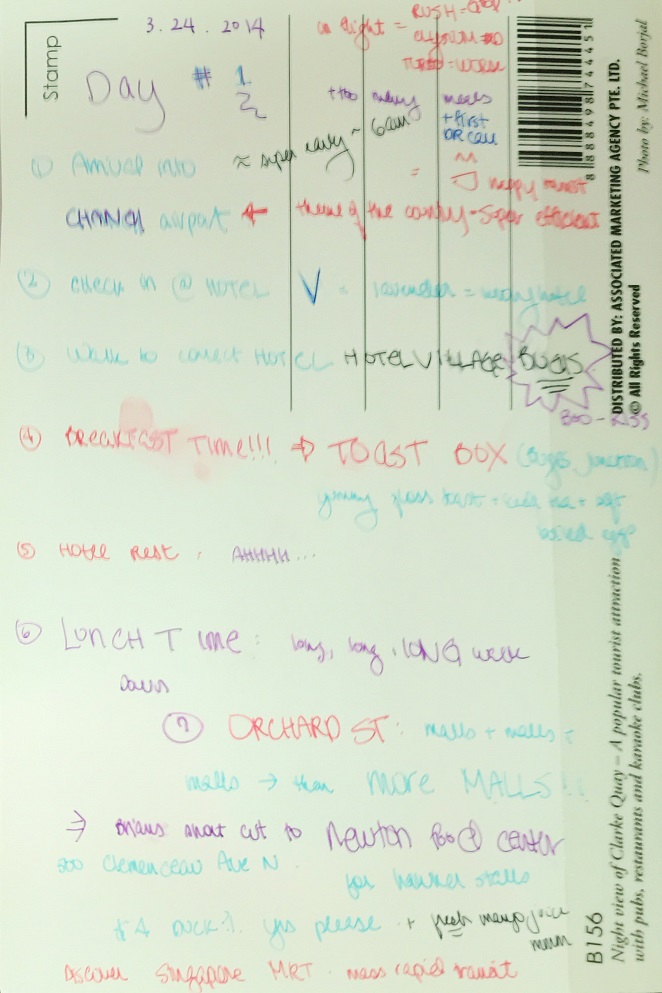 Stamp
3.24.2014
in flight =
Day # 1
+ too many meals
+ first
≈ super early ~ 6am
① Arrival into
= happy
CHANGI airport ← theme of the country - super efficient
② Check in @ HOTEL V - lavender = wrong hotel
③ Walk to correct HOTEL HOTEL VILLAGE BUGIS
④ BREAKFAST TIME!!! ⇒ TOAST BOX (Bugis junction)
yummy floss toast + + soft
boiled egg
⑤ HOTEL REST : AHHHH...
⑥ LUNCH TIME : long, long, LONG walk
down
⑦ ORCHARD ST : malls + malls +
malls → then MORE MALLS!!
⇒ short cut to Newton Food center
500 Clemenceau Ave N.
for hawker stalls
DUCK yes please + fresh mango juice
mmm
Discover Singapore MRT - mass rapid transit
8 888498 744451
Photo by: Michael Borjal
DISTRIBUTED BY: ASSOCIATED MARKETING AGENCY PTE. LTD.
© All Rights Reserved
B156
Night view of Clarke Quay – A popular tourist attraction
with pubs, restaurants and karaoke clubs.